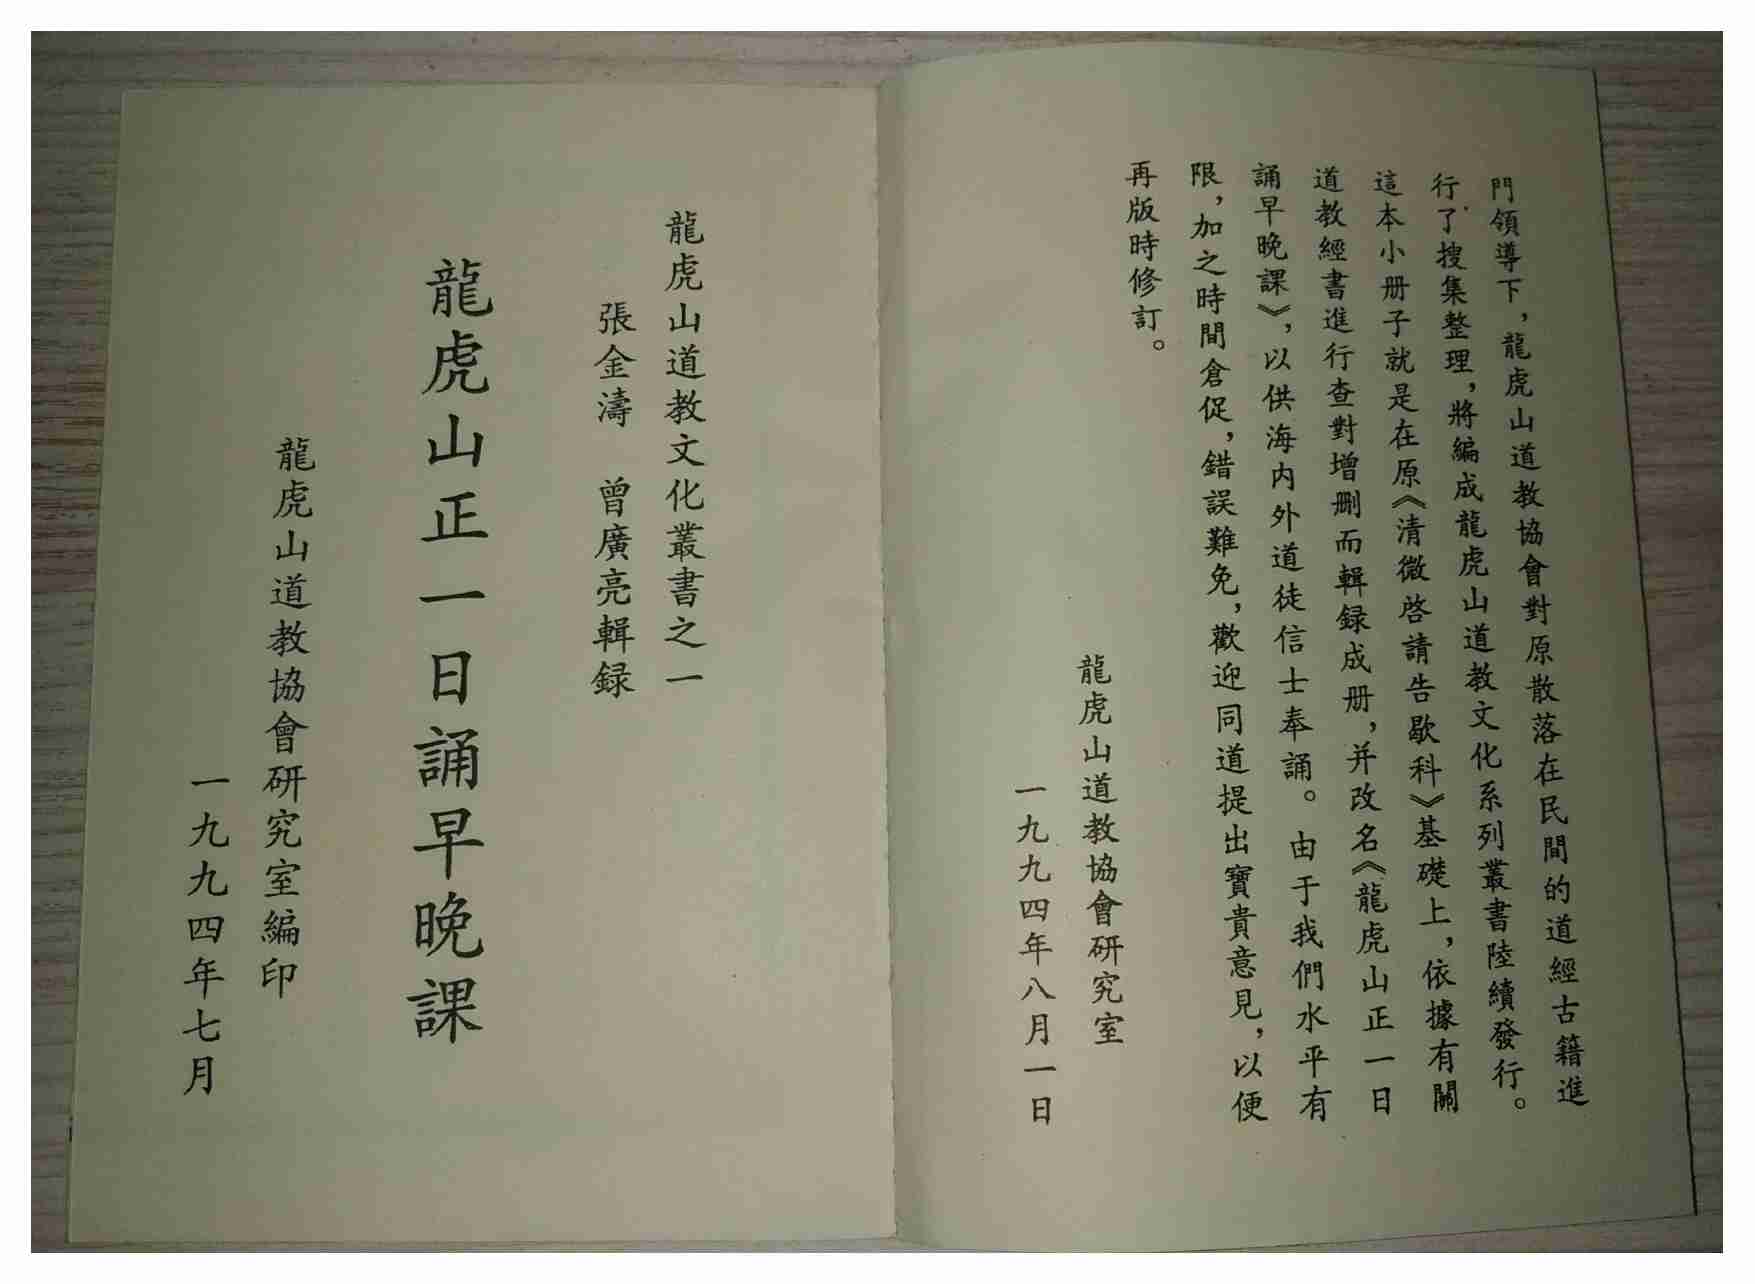 門領導下，龍虎山道教協會對原散落在民間的道經古籍進
行了搜集整理，將編成龍虎山道教文化系列叢書陸續發行。
這本小册子就是在原《清微啓請告歇科》基礎上，依據有關
道教經書進行查對增删而輯録成册，并改名《龍虎山正一日
誦早晚課》，以供海内外道徒信士奉誦。由于我們水平有
限，加之時間倉促，錯誤難免，歡迎同道提出寶貴意見，以便
再版時修訂。
龍虎山道教協會研究室
一九九四年八月一日
龍虎山道教文化叢書之一
張金濤　曾廣亮輯録
龍虎山正一日誦早晚課
龍虎山道教協會研究室編印
一九九四年七月